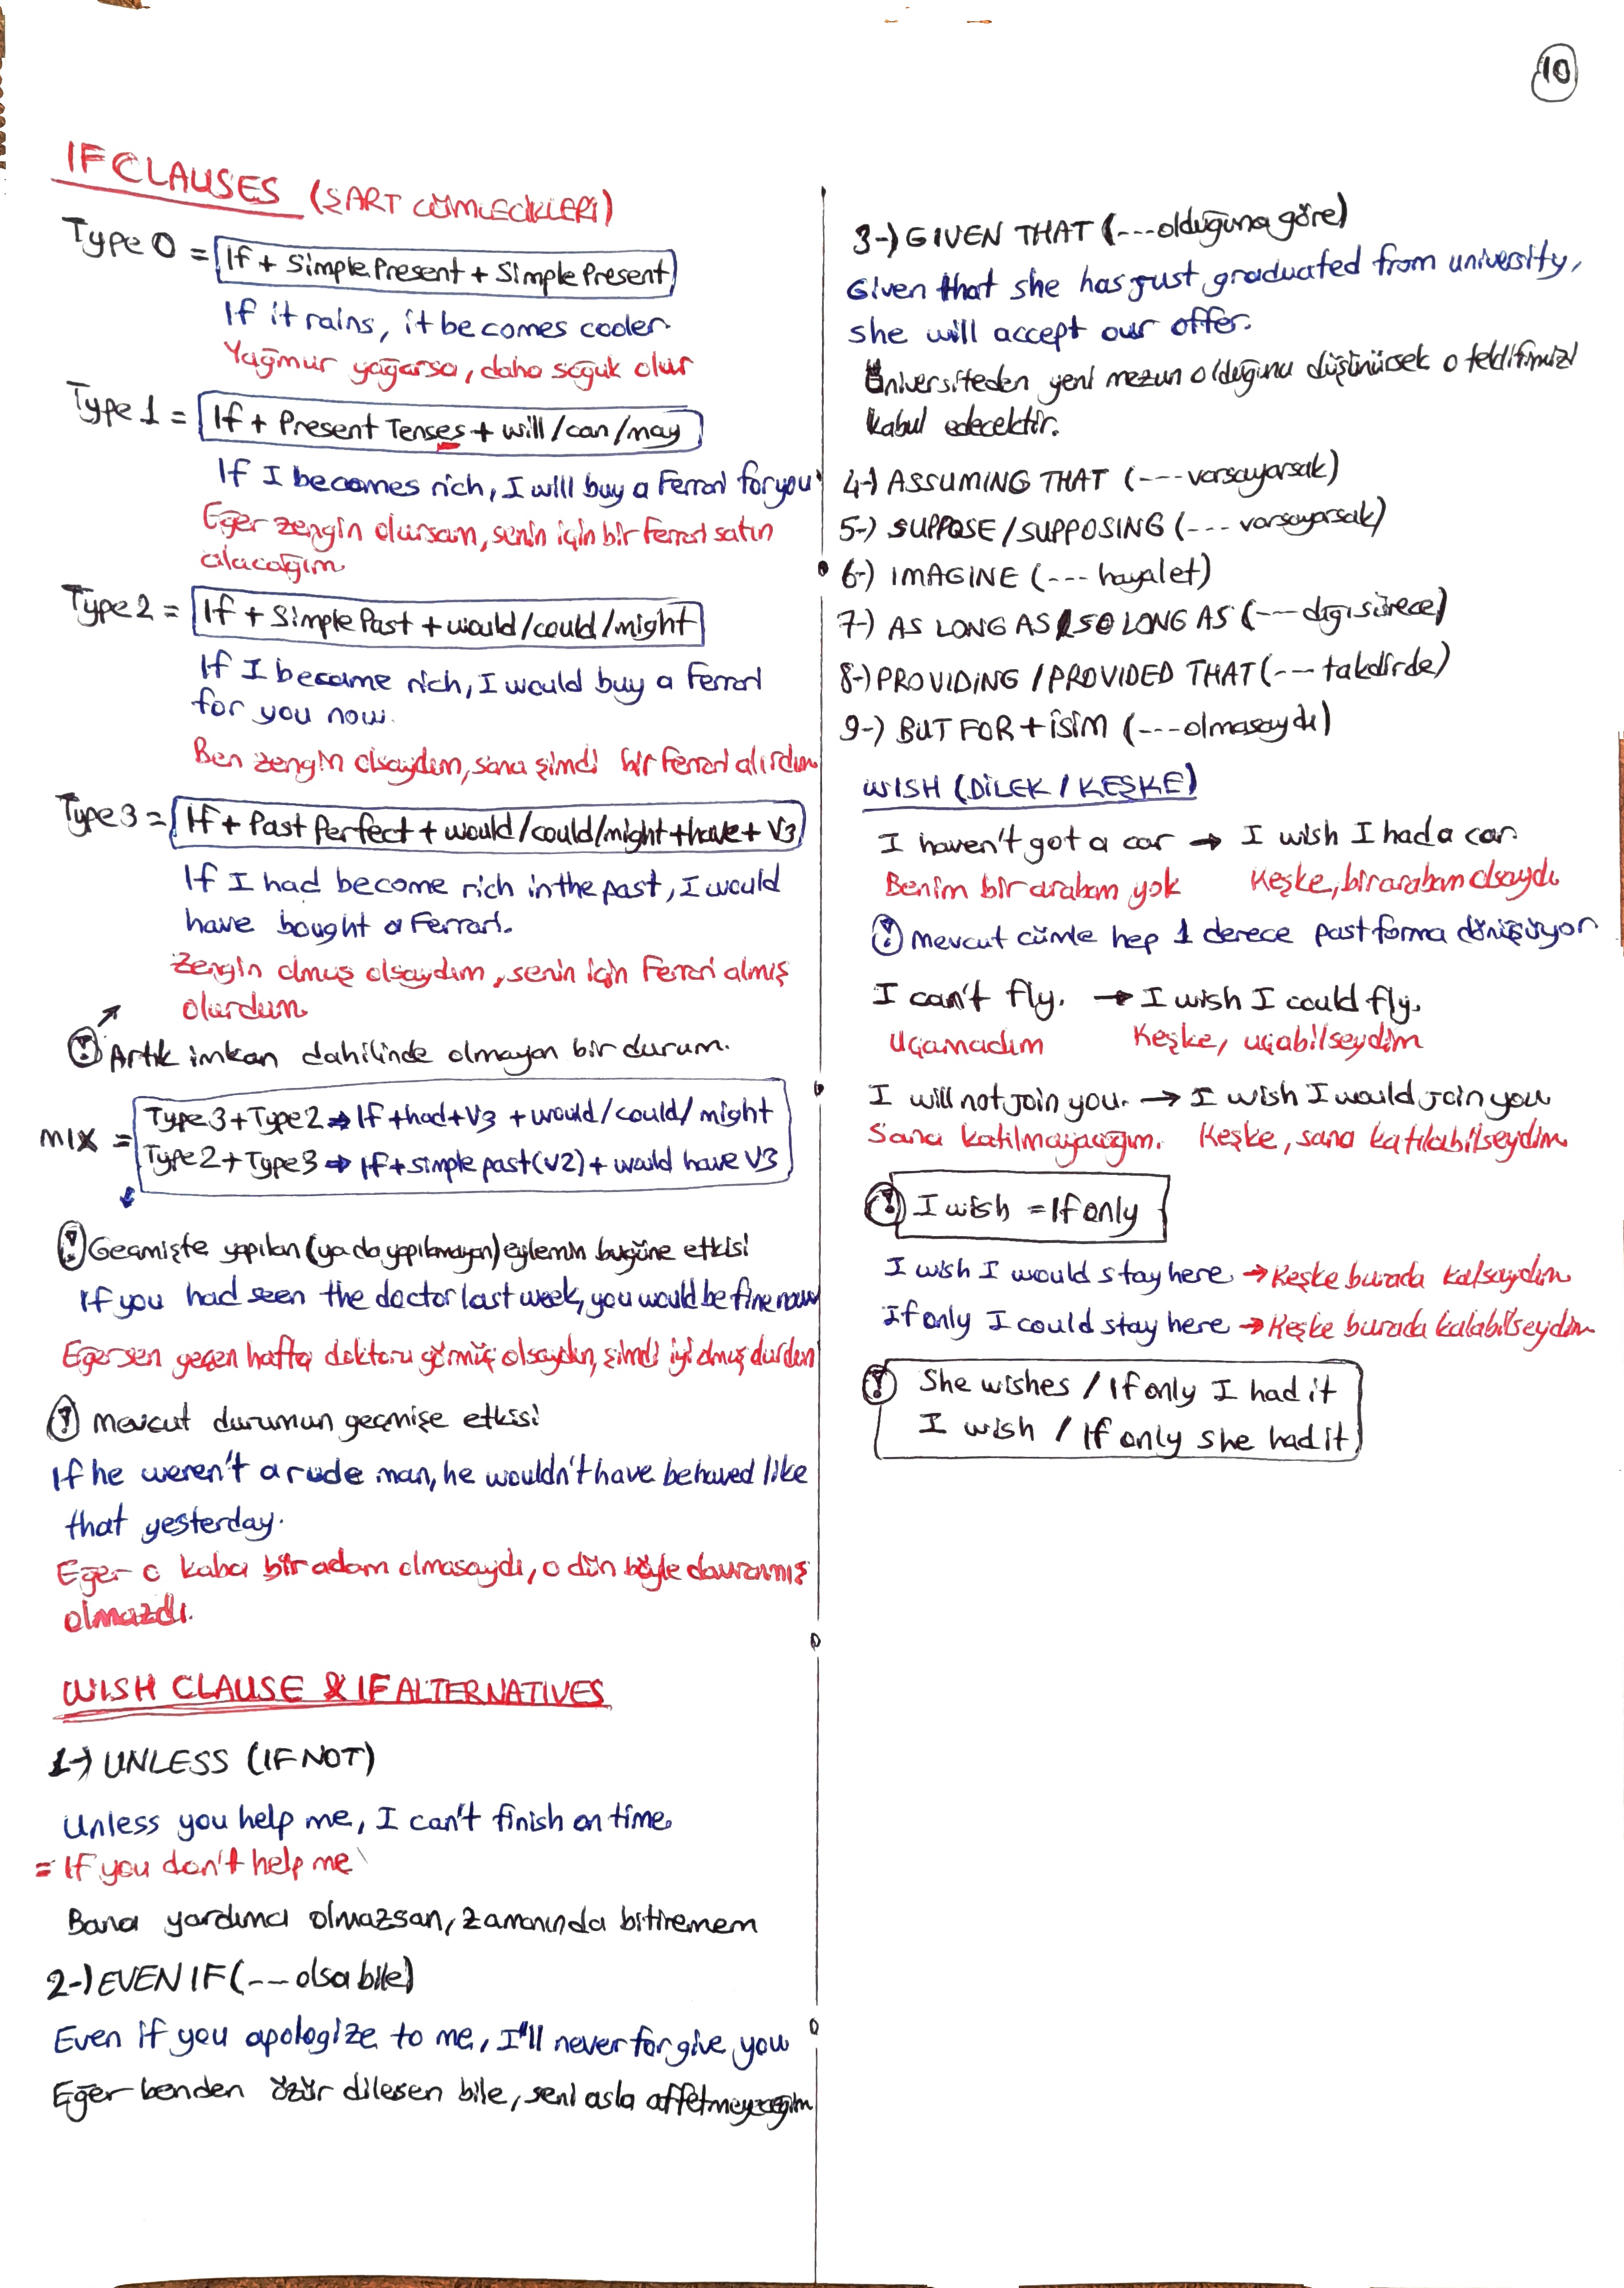 10
IF CLAUSES (ŞART CÜMLECİKLERİ)
Type 0 = If + Simple Present + Simple Present
If it rains, it becomes cooler.
Yağmur yağarsa, daha soğuk olur
Type 1 = If + Present Tenses + will/can/may
If I becomes rich, I will buy a Ferrari for you
Eğer zengin olursam, senin için bir ferrari satın
alacağım
Type 2 = If + Simple Past + would/could/might
If I became rich, I would buy a Ferrari
for you now.
Ben zengin olsaydım, sana şimdi bir Ferrari alırdım
Type 3 = If + Past Perfect + would/could/might + have + V3
If I had become rich in the past, I would
have bought a Ferrari.
Zengin olmuş olsaydım, senin için Ferrari almış
olurdum
! Artık imkan dahilinde olmayan bir durum.
MIX = Type 3 + Type 2 → If + had + V3 + would/could/might
Type 2 + Type 3 → If + simple past (V2) + would have V3
! Geçmişte yapılan (ya da yapılmayan) eylemin bugüne etkisi
If you had seen the doctor last week, you would be fine now
Eğer sen geçen hafta doktoru görmüş olsaydın, şimdi iyi olmuş durdun
! Mevcut durumun geçmişe etkisi
If he weren't a rude man, he wouldn't have behaved like
that yesterday.
Eğer o kaba bir adam olmasaydı, o dün böyle davranmış
olmazdı.
WISH CLAUSE & IF ALTERNATIVES
1-) UNLESS (IF NOT)
Unless you help me, I can't finish on time.
= If you don't help me
Bana yardımcı olmazsan, zamanında bitiremem
2-) EVEN IF (--- olsa bile)
Even if you apologize to me, I'll never forgive you
Eğer benden özür dilesen bile, seni asla affetmeyeceğim
3-) GIVEN THAT (--- olduğuna göre)
Given that she has just graduated from university,
she will accept our offer.
Üniversiteden yeni mezun olduğunu düşünürsek o teklifimizi
kabul edecektir.
4-) ASSUMING THAT (--- varsayarsak)
5-) SUPPOSE / SUPPOSING (--- varsayarsak)
6-) IMAGINE (--- hayal et)
7-) AS LONG AS / SO LONG AS (--- dığı sürece)
8-) PROVIDING / PROVIDED THAT (--- takdirde)
9-) BUT FOR + İSİM (--- olmasaydı)
WISH (DİLEK / KEŞKE)
I haven't got a car → I wish I had a car.
Benim bir arabam yok Keşke, bir arabam olsaydı
! Mevcut cümle hep 1 derece past forma dönüşüyor
I can't fly. → I wish I could fly.
Uçamadım Keşke, uçabilseydim
I will not join you. → I wish I would join you
Sana katılmayacağım. Keşke, sana katılabilseydim
! I wish = If only
I wish I would stay here → Keşke burada kalsaydım
If only I could stay here → Keşke burada kalabilseydim
! She wishes / If only I had it
I wish / If only she had it